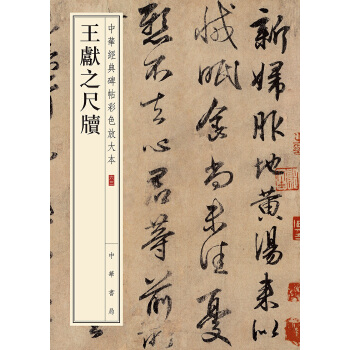 王獻之尺牘
中華經典碑帖彩色放大本
中華書局
新婦服地黃湯來似
減眠食尚未佳憂
懸不去心君等前